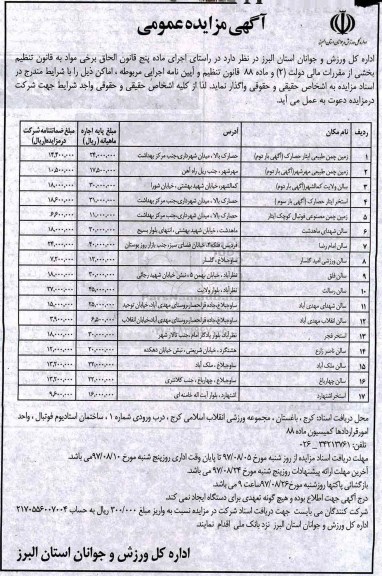 آگهی مزایده عمومی
اداره کل ورزش و جوانان استان البرز
اداره کل ورزش و جوانان استان البرز در نظر دارد در راستای اجرای ماده پنج قانون الحاق برخی مواد به قانون تنظیم
بخشی از مقررات مالی دولت (۲) و ماده ۸۸ قانون تنظیم و آیین نامه اجرایی مربوطه ، اماکن ذیل را با شرایط مندرج در
اسناد مزایده به اشخاص حقیقی و حقوقی واگذار نماید. لذا از کلیه اشخاص حقیقی و حقوقی واجد شرایط جهت شرکت
درمزایده دعوت به عمل می آید.
ردیف نام مکان آدرس مبلغ پایه اجاره ماهیانه (ریال) مبلغ ضمانتنامه شرکت درمزایده(ریال)
۱ زمین چمن طبیعی ایثار حصارک (آگهی بار دوم) حصارک بالا، میدان شهرداری،جنب مرکز بهداشت
۲ زمین چمن طبیعی مهرشهر(آگهی بار دوم) مهرشهر ، جنب ریل راه آهن ۱۷،۵۰۰،۰۰۰ ۱۰،۵۰۰،۰۰۰
۳ سالن ولایت کمالشهر(آگهی بار دوم) کمالشهر، خیابان شهید بهشتی ، خیابان شورا ۳۰،۰۰۰،۰۰۰ ۱۸،۰۰۰،۰۰۰
۴ استخر ایثار حصارک (آگهی بار سوم) حصارک بالا، میدان شهرداری،جنب مرکز بهداشت ۳۱،۰۰۰،۰۰۰ ۱۸،۶۰۰،۰۰۰
۵ زمین چمن مصنوعی فوتبال کوچک ایثار حصارک بالا، میدان شهرداری،جنب مرکز بهداشت ۱۱،۰۰۰،۰۰۰ ۶،۶۰۰،۰۰۰
۶ سالن شهدای ماهدشت ماهدشت ، خیابان شهید بهشتی ، انتهای بلوار بسیج ۳۰،۰۰۰،۰۰۰ ۱۸،۰۰۰،۰۰۰
۷ سالن امام رضا فردیس، فلکه۲، خیابان فضای سبز، جنب بازار روز بوستان ۴۰،۰۰۰،۰۰۰ ۲۴،۰۰۰،۰۰۰
۸ سالن ورزشی امید گلسار ساوجبلاغ ، گلسار ۱۲،۰۰۰،۰۰۰ ۷،۲۰۰،۰۰۰
۹ سالن فلق نظرآباد ، خیابان بهمن ۵، نبش خیابان شهید رجائی ۳۰،۰۰۰،۰۰۰ ۱۸،۰۰۰،۰۰۰
۱۰ سالن رسالت نظرآباد ، بلوار ولایت ۴۵،۰۰۰،۰۰۰ ۲۷،۰۰۰،۰۰۰
۱۱ سالن شهدای مهدی آباد ۲۵،۰۰۰،۰۰۰ ۱۵،۰۰۰،۰۰۰
۱۲ سالن انقلاب مهدی آباد ۶،۵۰۰،۰۰۰ ۳،۹۰۰،۰۰۰
۱۳ استخر فجر نظرآباد بلوار یادگار امام جنب تالار شهر ۳۰،۰۰۰،۰۰۰ ۱۸،۰۰۰،۰۰۰
۱۴ سالن ناصر زارع هشتگرد ، خیابان شریعتی ، نبش خیابان دهکده ۲۰،۰۰۰،۰۰۰ ۱۲،۰۰۰،۰۰۰
۱۵ سالن ملک آباد ساوجبلاغ ، ملک آباد ۲۲،۰۰۰،۰۰۰ ۱۳،۲۰۰،۰۰۰
۱۶ سالن چهارباغ ساوجبلاغ ، چهارباغ ، جنب کلانتری ۲۲،۰۰۰،۰۰۰ ۱۳،۲۰۰،۰۰۰
۱۷ استخر اشتهارد اشتهارد، بلوار آیت اله خامنه ای ۱۶،۰۰۰،۰۰۰ ۹،۶۰۰،۰۰۰
محل دریافت اسناد: کرج ، باغستان ، مجموعه ورزشی انقلاب اسلامی کرج ، درب ورودی شماره ۱ ، ساختمان استادیوم فوتبال ، واحد
امورقراردادها کمیسیون ماده ۸۸
تلفن: ۳۴۲۱۳۷۶۱ _ ۰۲۶
مهلت دریافت اسناد مزایده از روز شنبه مورخ ۹۷/۰۸/۰۵ تا پایان وقت اداری روزپنج شنبه مورخ ۹۷/۰۸/۱۰می باشد.
آخرین مهلت ارائه پیشنهادات روزپنج شنبه مورخ ۹۷/۰۸/۲۴ می باشد.
بازگشائی پاکتها روزشنبه مورخ۹۷/۰۸/۲۶ساعت ۹ می باشد.
درج آگهی جهت اطلاع بوده و هیچ گونه تعهدی برای دستگاه ایجاد نمی کند.
شرکت کنندگان می بایست جهت دریافت اسناد شرکت در مزایده نسبت به واریز مبلغ ۳۰۰/۰۰۰ ریال به حساب ۲۱۷۰۵۵۶۰۰۷۰۰۴
اداره کل ورزش و جوانان استان البرز نزد بانک ملی اقدام نمایند.
اداره کل ورزش و جوانان استان البرز